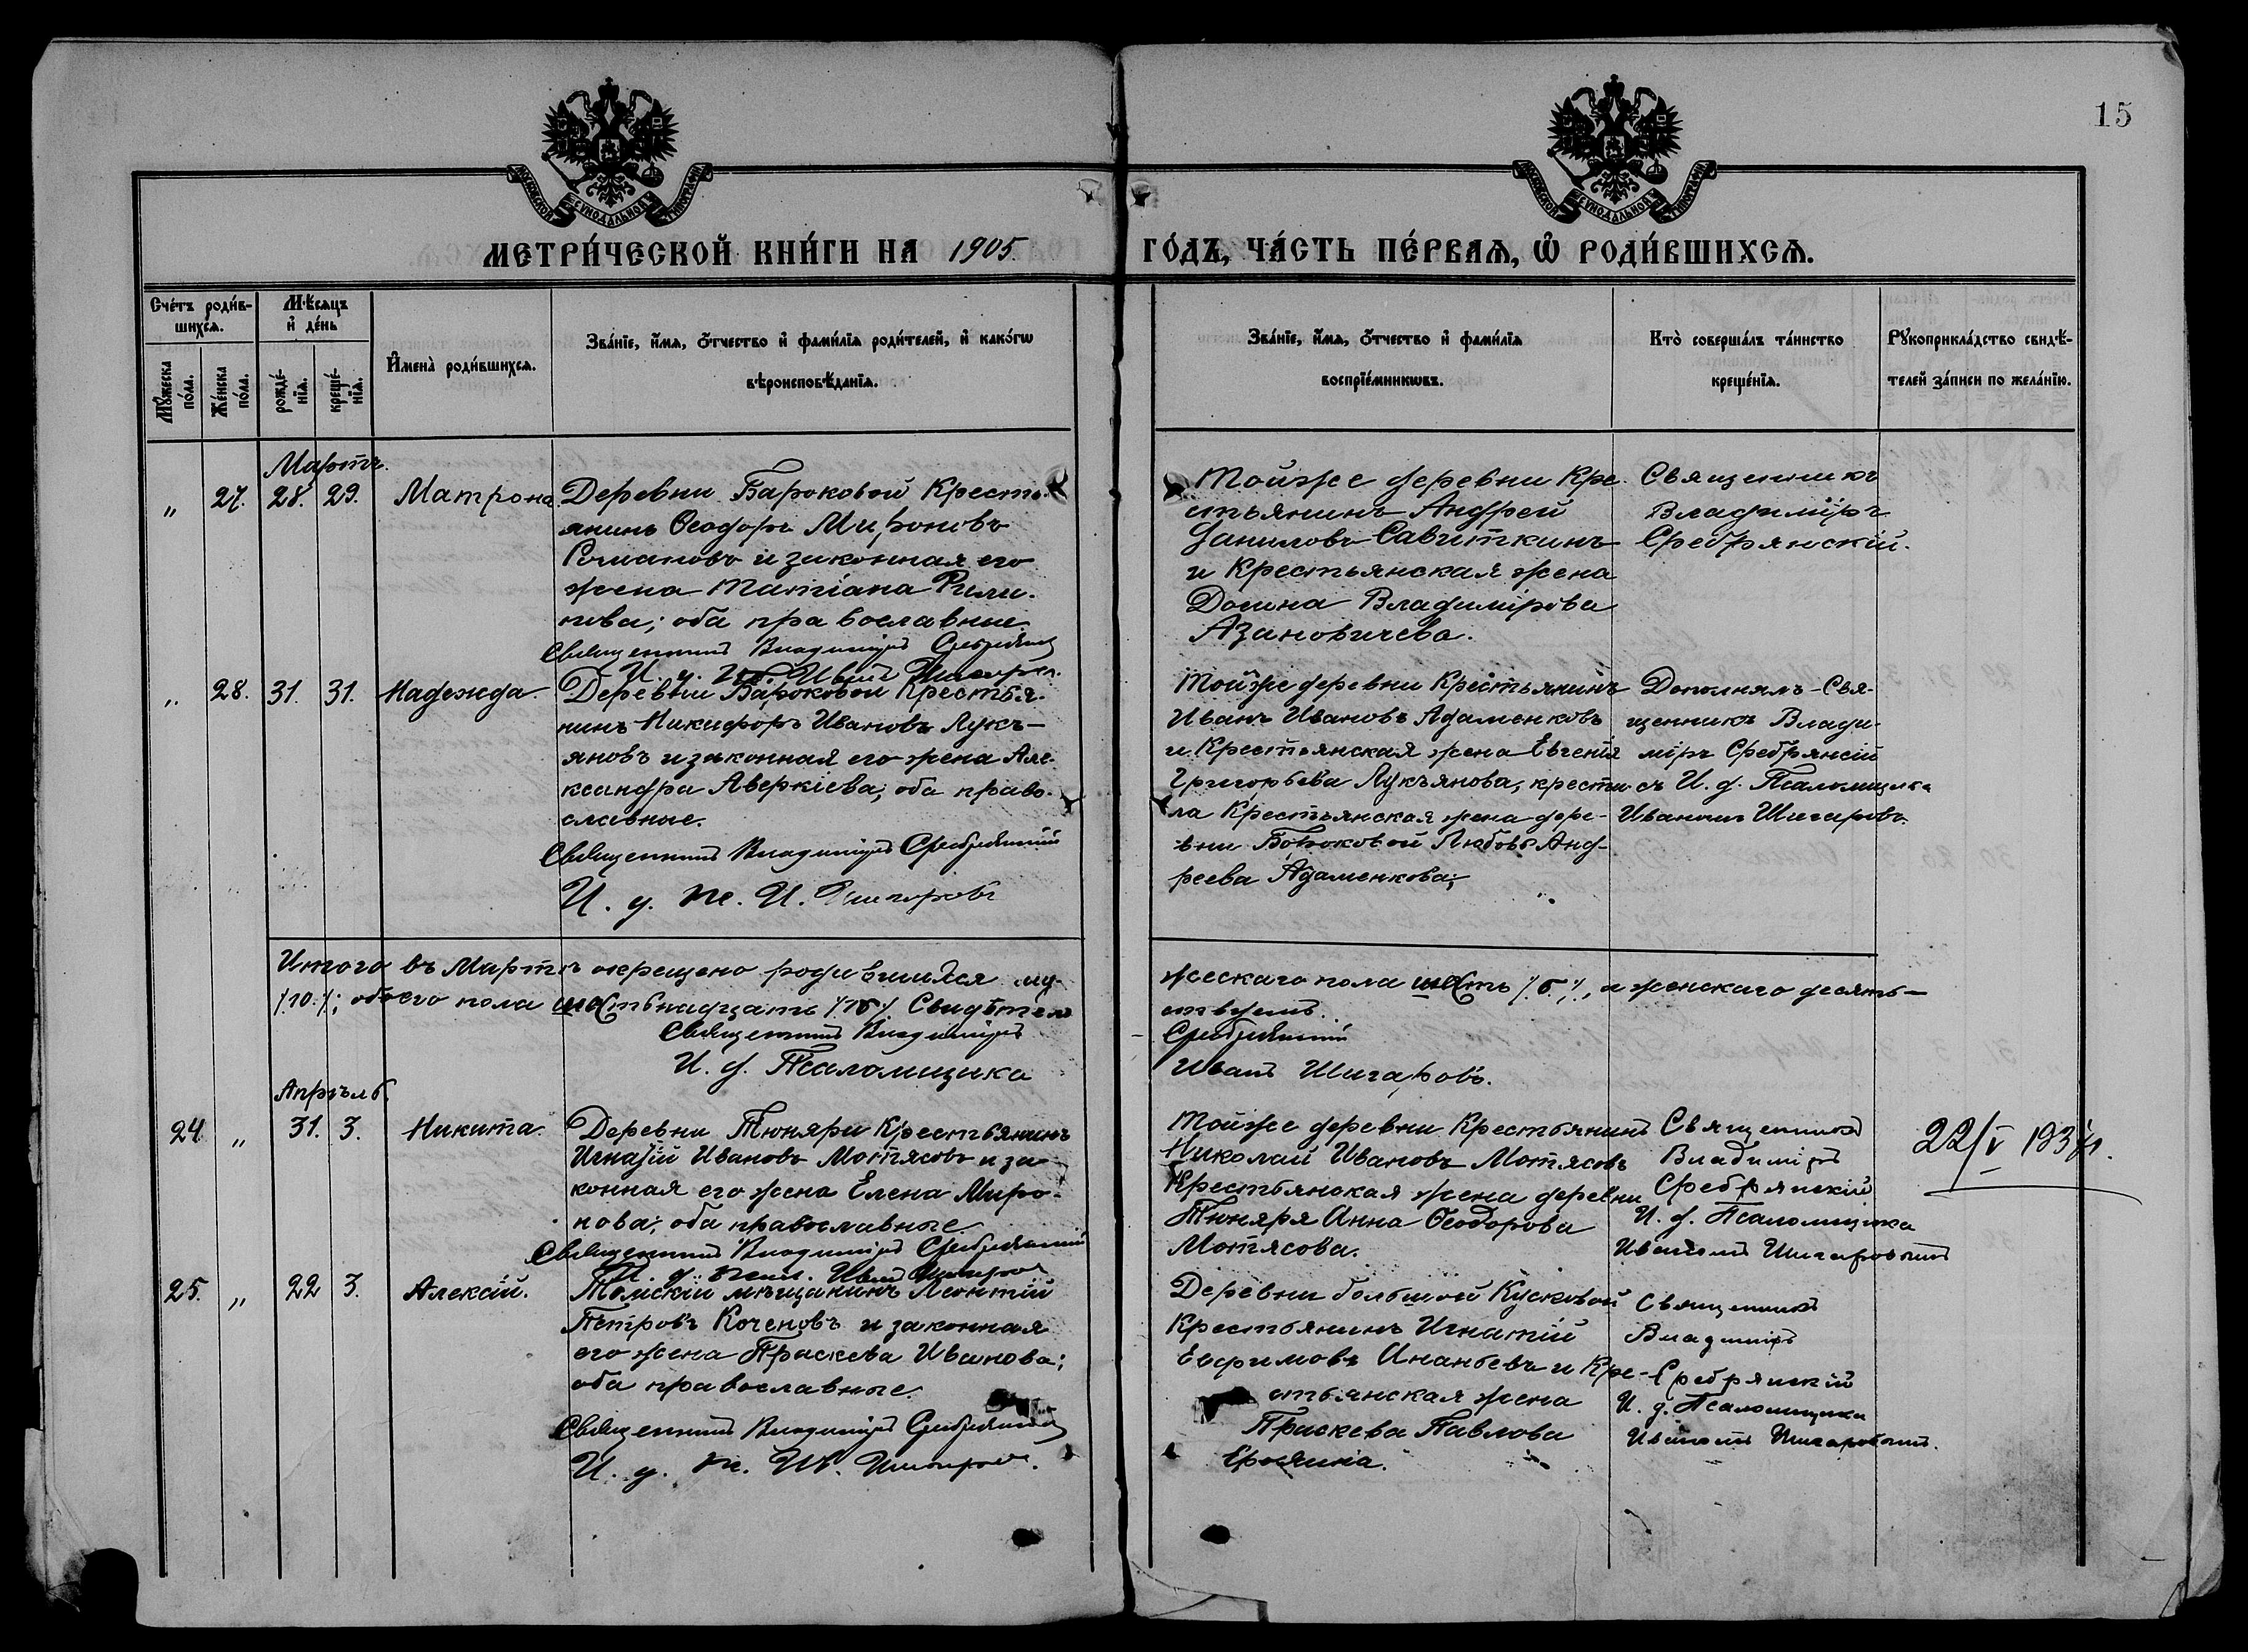 15
МОСКОВСКОЙ СУНОДАЛЬНОЙ ТИПОГРАФІИ
МОСКОВСКОЙ СУНОДАЛЬНОЙ ТИПОГРАФІИ
МЕТРИ́ЧЕСКОЙ КНИ́ГИ НА 1905 ГО́ДЪ, ЧА́СТЬ ПЕ́РВАѦ, Ѡ҆ РОДИ́ВШИХСѦ.
Сче́тъ роди́в-
шихсѧ.
Мѣ́сѧцъ
и҆ де́нь
Мꙋ́жеска
по́ла.
Же́нска
по́ла.
рожде́-
нїѧ.
креще́-
нїѧ.
И҆мена̀ роди́вшихсѧ.
Зва́нїе, и҆́мѧ, ѻ҆́тчество и҆ фами́лїѧ роди́телей, и҆ како́гѡ
вѣроисповѣ́данїѧ.
Зва́нїе, и҆́мѧ, ѻ҆́тчество и҆ фами́лїѧ
воспрїе́мникѡвъ.
Кто̀ соверша́лъ та́инство
креще́нїѧ.
Рꙋкоприкла́дство свидѣ́-
телей за́писи по жела́нїю.
Мартъ.
" 27. 28. 29. Матрона
Деревни Бароковой Кресть-
янинъ Ѳеодоръ Мироновъ
Романовъ и законная его
жена Татіана
оба православные.
Священникъ Владиміръ Сребрянскій
И. д. Пс. Иванъ Шигаровъ
Тойже деревни Кре-
стьянинъ Андрей
Даниловъ Савиткинъ
и Крестьянская жена
Домна Владимірова
Азановичева.
Священникъ
Владиміръ
Сребрянскій.
" 28. 31. 31. Надежда
Деревни Бароковой Крестья-
нинъ Никифоръ Ивановъ Лукъ-
яновъ и законная его жена Але-
ксандра Аверкіева; оба право-
славные.
Священникъ Владиміръ Сребрянскій
И. д. пс. И. Шигаровъ
Тойже деревни Крестьянинъ
Иванъ Ивановъ Адаменковъ
и Крестьянская жена Евгенія
Григорьева Лукъянова, крести-
ла Крестьянская жена дере-
вни Бароковой Любовь Анд-
реева Адаменкова;
Дополнялъ - Свя-
щенникъ Влади-
міръ Сребрянсій
съ И. д. Псаломщика
Иваномъ Шигаровъ.
Итого въ Мартъ окрещено родившихся му-
жескаго пола шесть /6/, и женскаго десять-
/10/; обоего пола шестьнадцать /16/. Свидѣтель-
ствуемъ.
Священникъ Владиміръ
Сребрянскій
И. д. Псаломщика
Иванъ Шигаровъ.
Апрѣль
24 " 31. 3. Никита.
Деревни Тюняри Крестьянинъ
Игнатій Ивановъ Мотясовъ и за-
конная его жена Елена Миро-
нова; оба православные
Священникъ Владиміръ Сребрянскій
И. д. Псал. Иванъ Шигаровъ
Тойже деревни Крестьянинъ
Николай Ивановъ Мотясовъ
Крестьянская жена деревни
Тюняря Анна Ѳеодорова
Мотясова.
Священникъ
Владиміръ
Сребрянскій
И. д. Псаломщика
Иваномъ Шигаровымъ
22/V 1937г.
25. " 22 3. Алексій.
Томскій мѣщанинъ Леонтій
Петровъ Коченовъ и законная
его жена Праскева Иванова;
оба православные.
Священникъ Владиміръ Сребрянскій
И. д. пс. Ив. Шигаровъ.
Деревни большой Кусковой
Крестьянинъ Игнатій
Евфимовъ Ананьевъ и Кре-
стьянская жена
Праскева Павлова
Священникъ
Владиміръ
Сребрянскій
И. д. Псаломщика
Иваномъ Шигаровымъ.